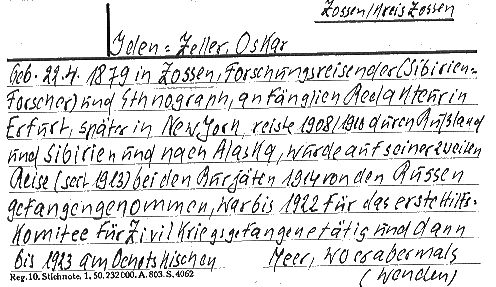 Zossen/Kreis Zossen
Iden=Zeller, Oskar
Geb. 22.4. 1879 in Zossen, Forschungsreisender (Sibirien=
Forscher) und Ethnograph, anfänglich Redakteur in
Erfurt, später in New York, reiste 1908/1910 durch Rußland
und Sibirien und nach Alaska, wurde auf seiner zweiten
Reise (seit 1913) bei den Burjäten 1914 von den Russen
gefangengenommen, war bis 1922 für das erste Hilfs-
Komitee für Zivil Kriegsgefangene tätig und dann
bis 1923 am Ochotskischen Meer, wo er abermals
(wenden)
Reg. 10. Stichnote. 1. 50. 232 000. A. 803. S. 4062